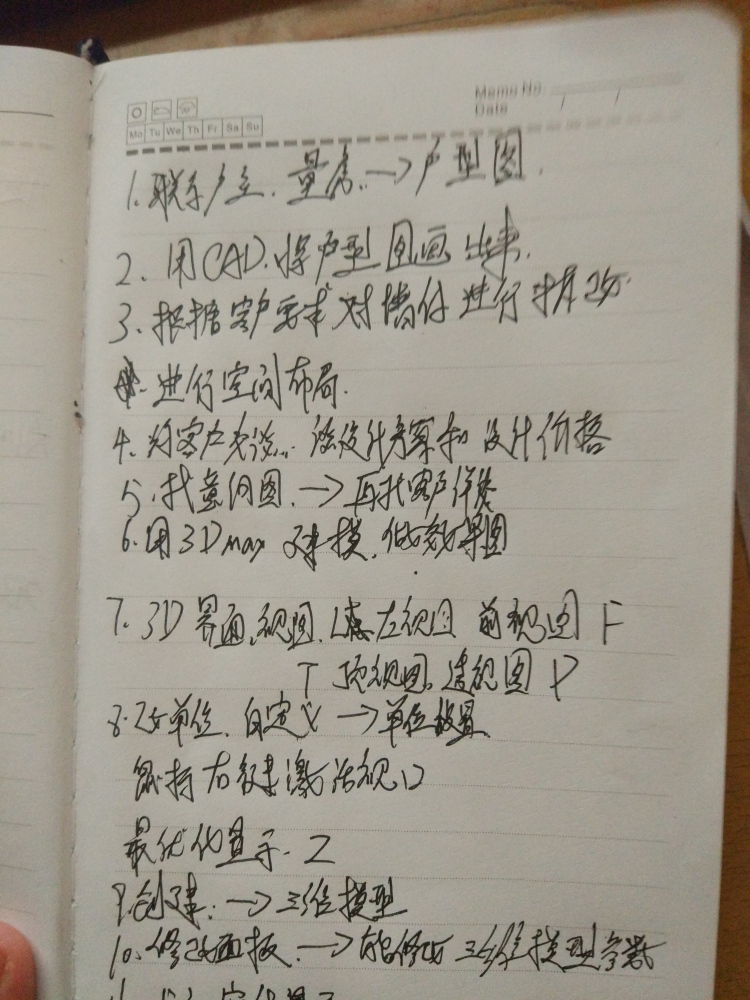 Memo No.
Date / /
Mo Tu We Th Fr Sa Su
1. 联系户主. 量房. → 户型图.
2. 用CAD. 将户型图画出来.
3. 根据客户要求 对墙体进行拆改.
进行空间布局.
4. 约客户交谈. 谈设计方案和设计价格
5. 找意向图. → 再找客户
6. 用3Dmax 建模. 做效果图
7. 3D界面. 视图. L 左视图 前视图 F
T 顶视图. 透视图 P
8. 改单位. 自定义 → 单位设置
鼠标右键激活视口
最优化显示. Z
9. 创建. → 三维模型
10. 修改面板. → 能修改三维模型参数